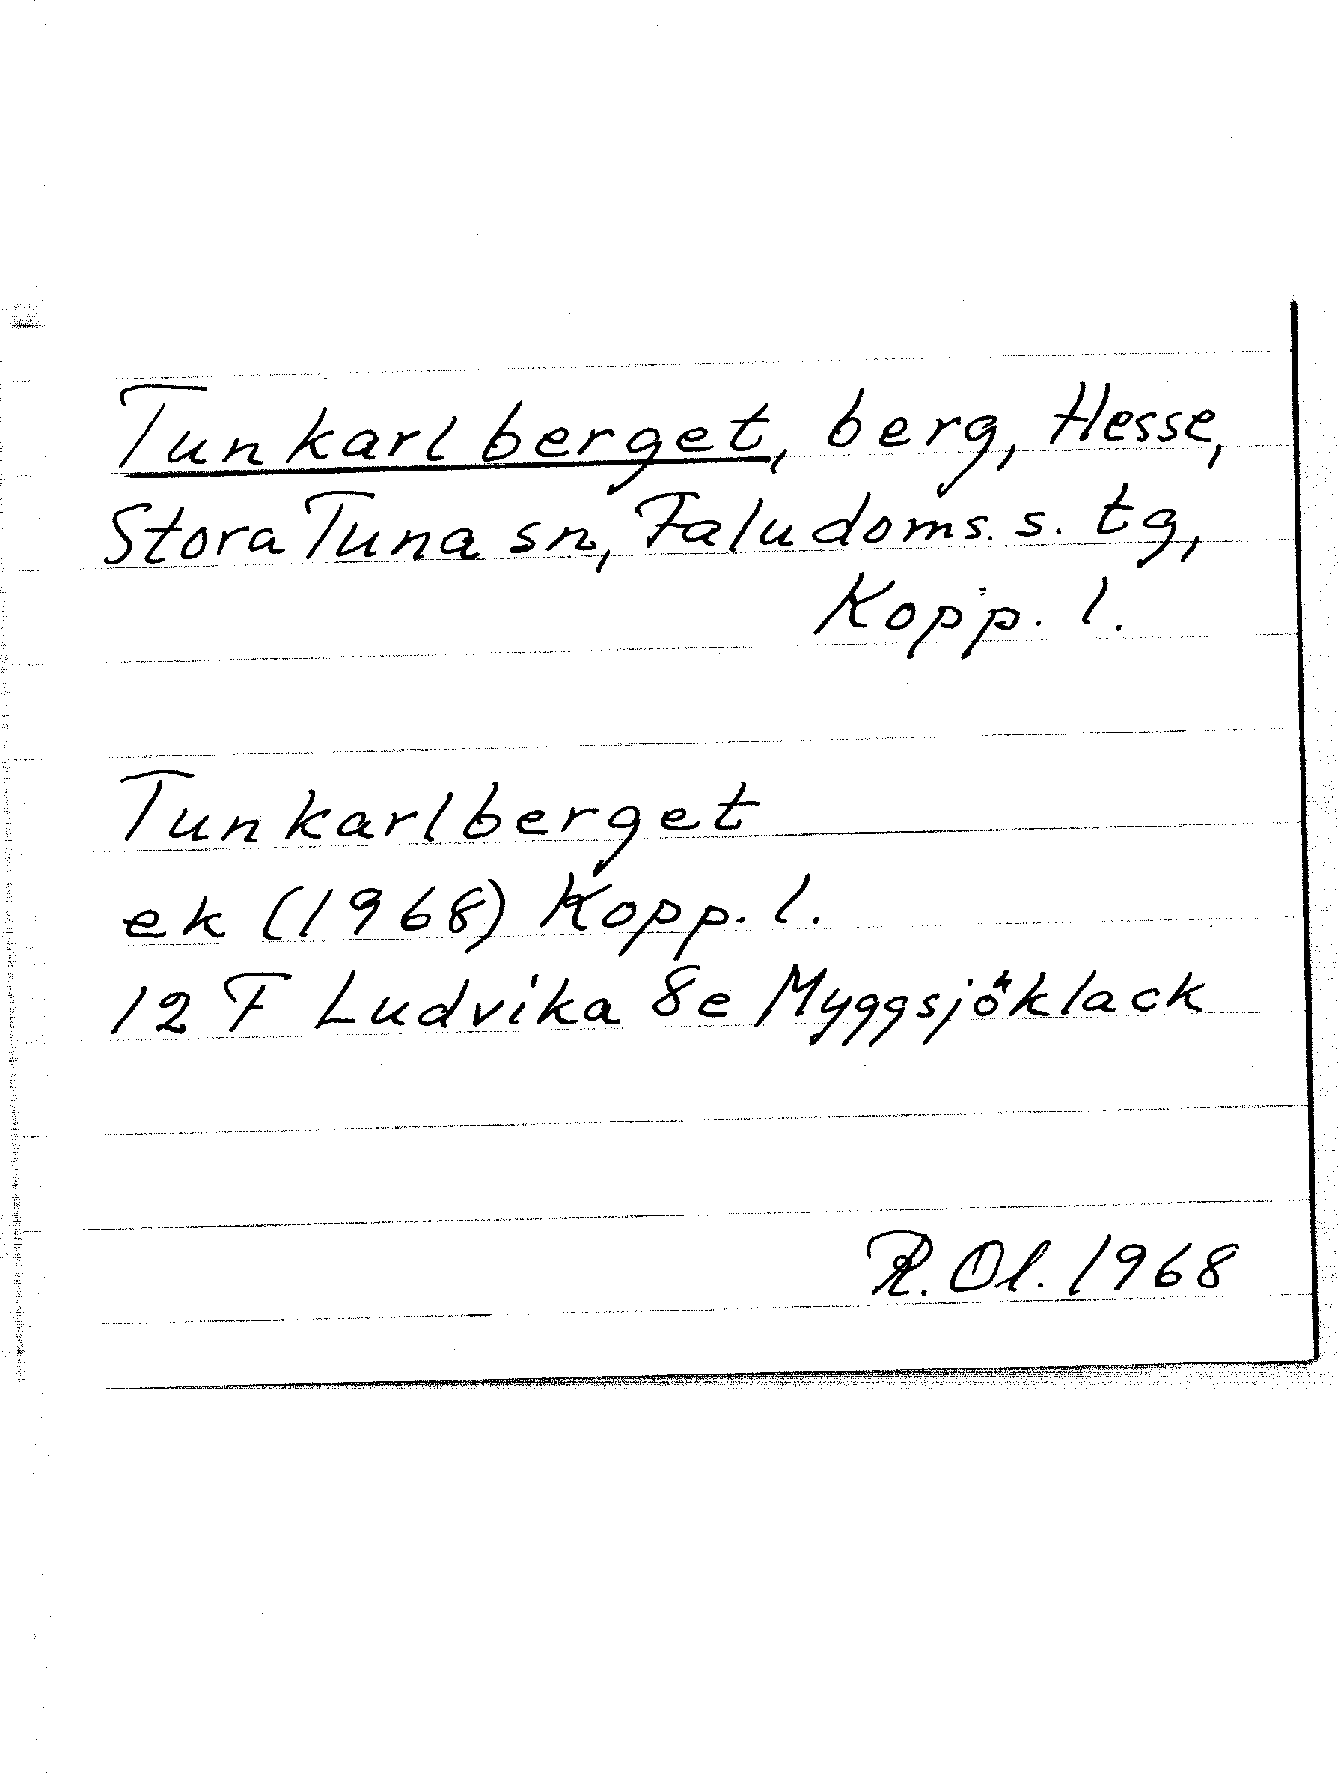 Tunkarlberget, berg, Hesse,
Stora Tuna sn, Faludoms. s. tg,
Kopp. l.
Tunkarlberget
ek (1968) Kopp. l.
12 F Ludvika 8e Myggsjöklack
R. Ol. 1968